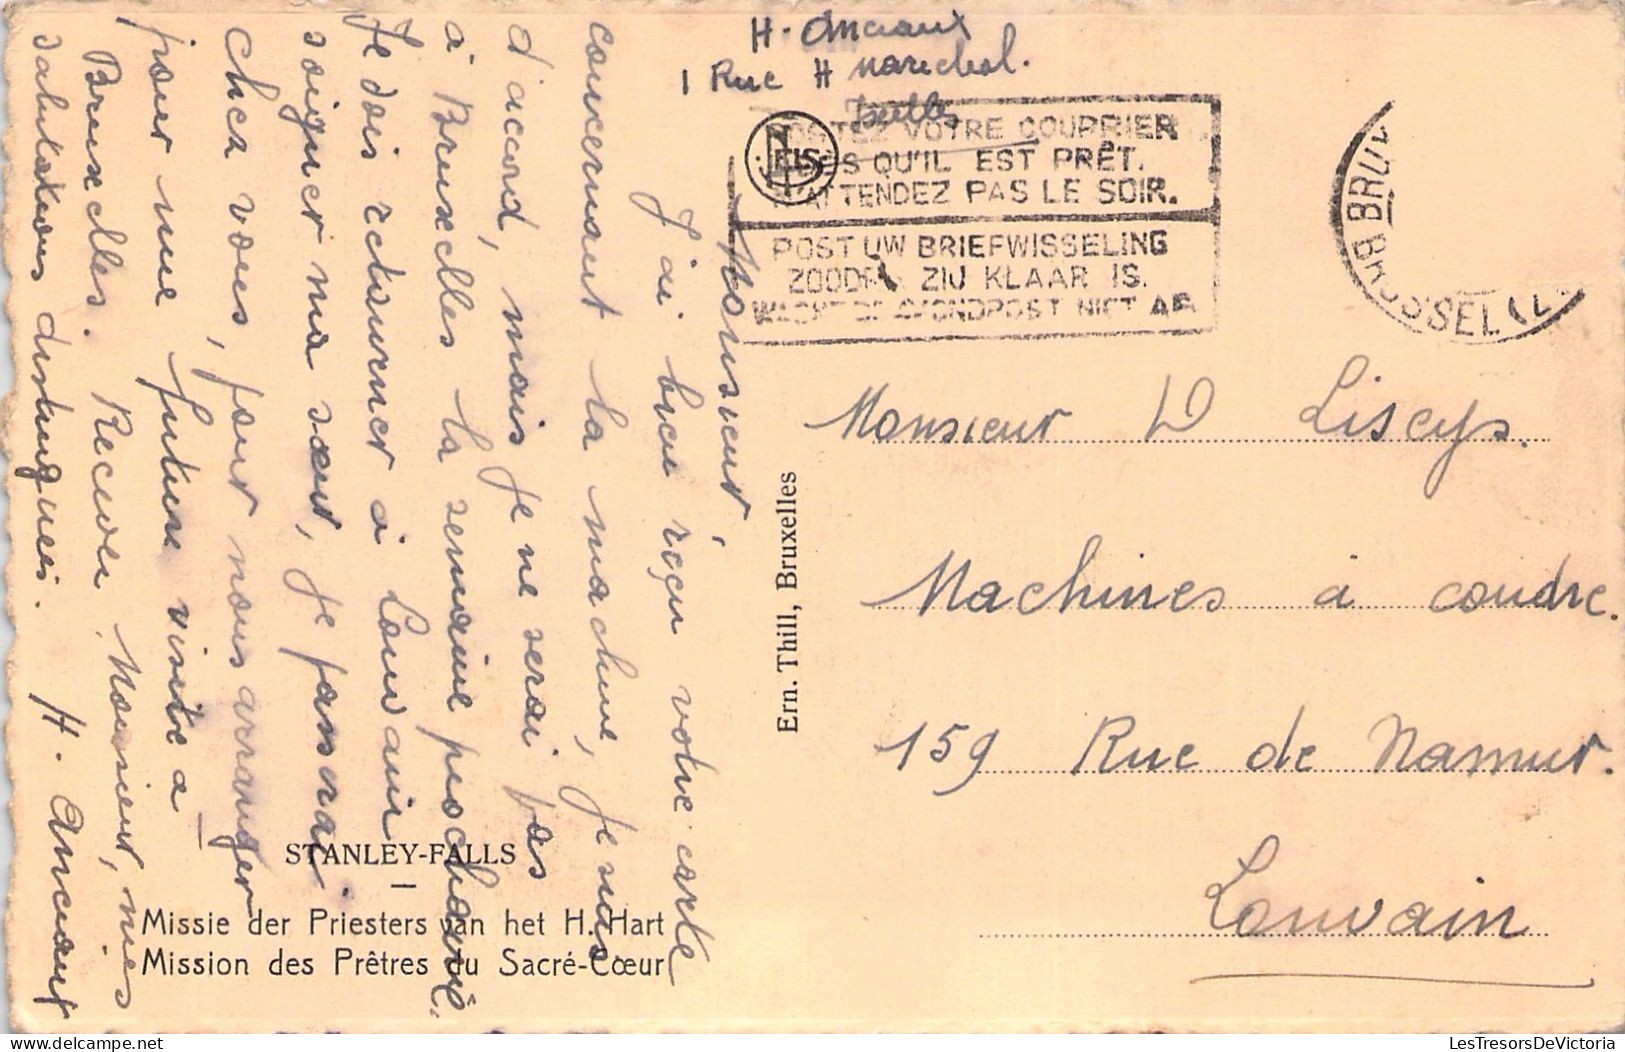 H. Anciaux
1 Rue H Marechal.
Ixelles
POSTEZ VOTRE COURRIER
DÈS QU'IL EST PRÊT.
N'ATTENDEZ PAS LE SOIR.
POST UW BRIEFWISSELING
ZOODRA ZIJ KLAAR IS.
WACHT DE AVONDPOST NIET AF.
BRUSSEL
Monsieur,
J'ai bien reçu votre carte
concernant la machine, je suis
d'accord, mais je ne serai pas
à Bruxelles la semaine prochaine.
Je dois retourner à Louvain
soigner ma sœur, je passerai
chez vous, pour nous arranger
pour une future visite a
Bruxelles. Recevez, Monsieur, mes
salutations distinguées. H. Anciaux
Ern. Thill, Bruxelles
Monsieur D Liseys.
Machines à coudre.
159 Rue de Namur.
Louvain
STANLEY-FALLS
Missie der Priesters van het H. Hart
Mission des Prêtres du Sacré-Cœur
LesTresorsDeVictoria